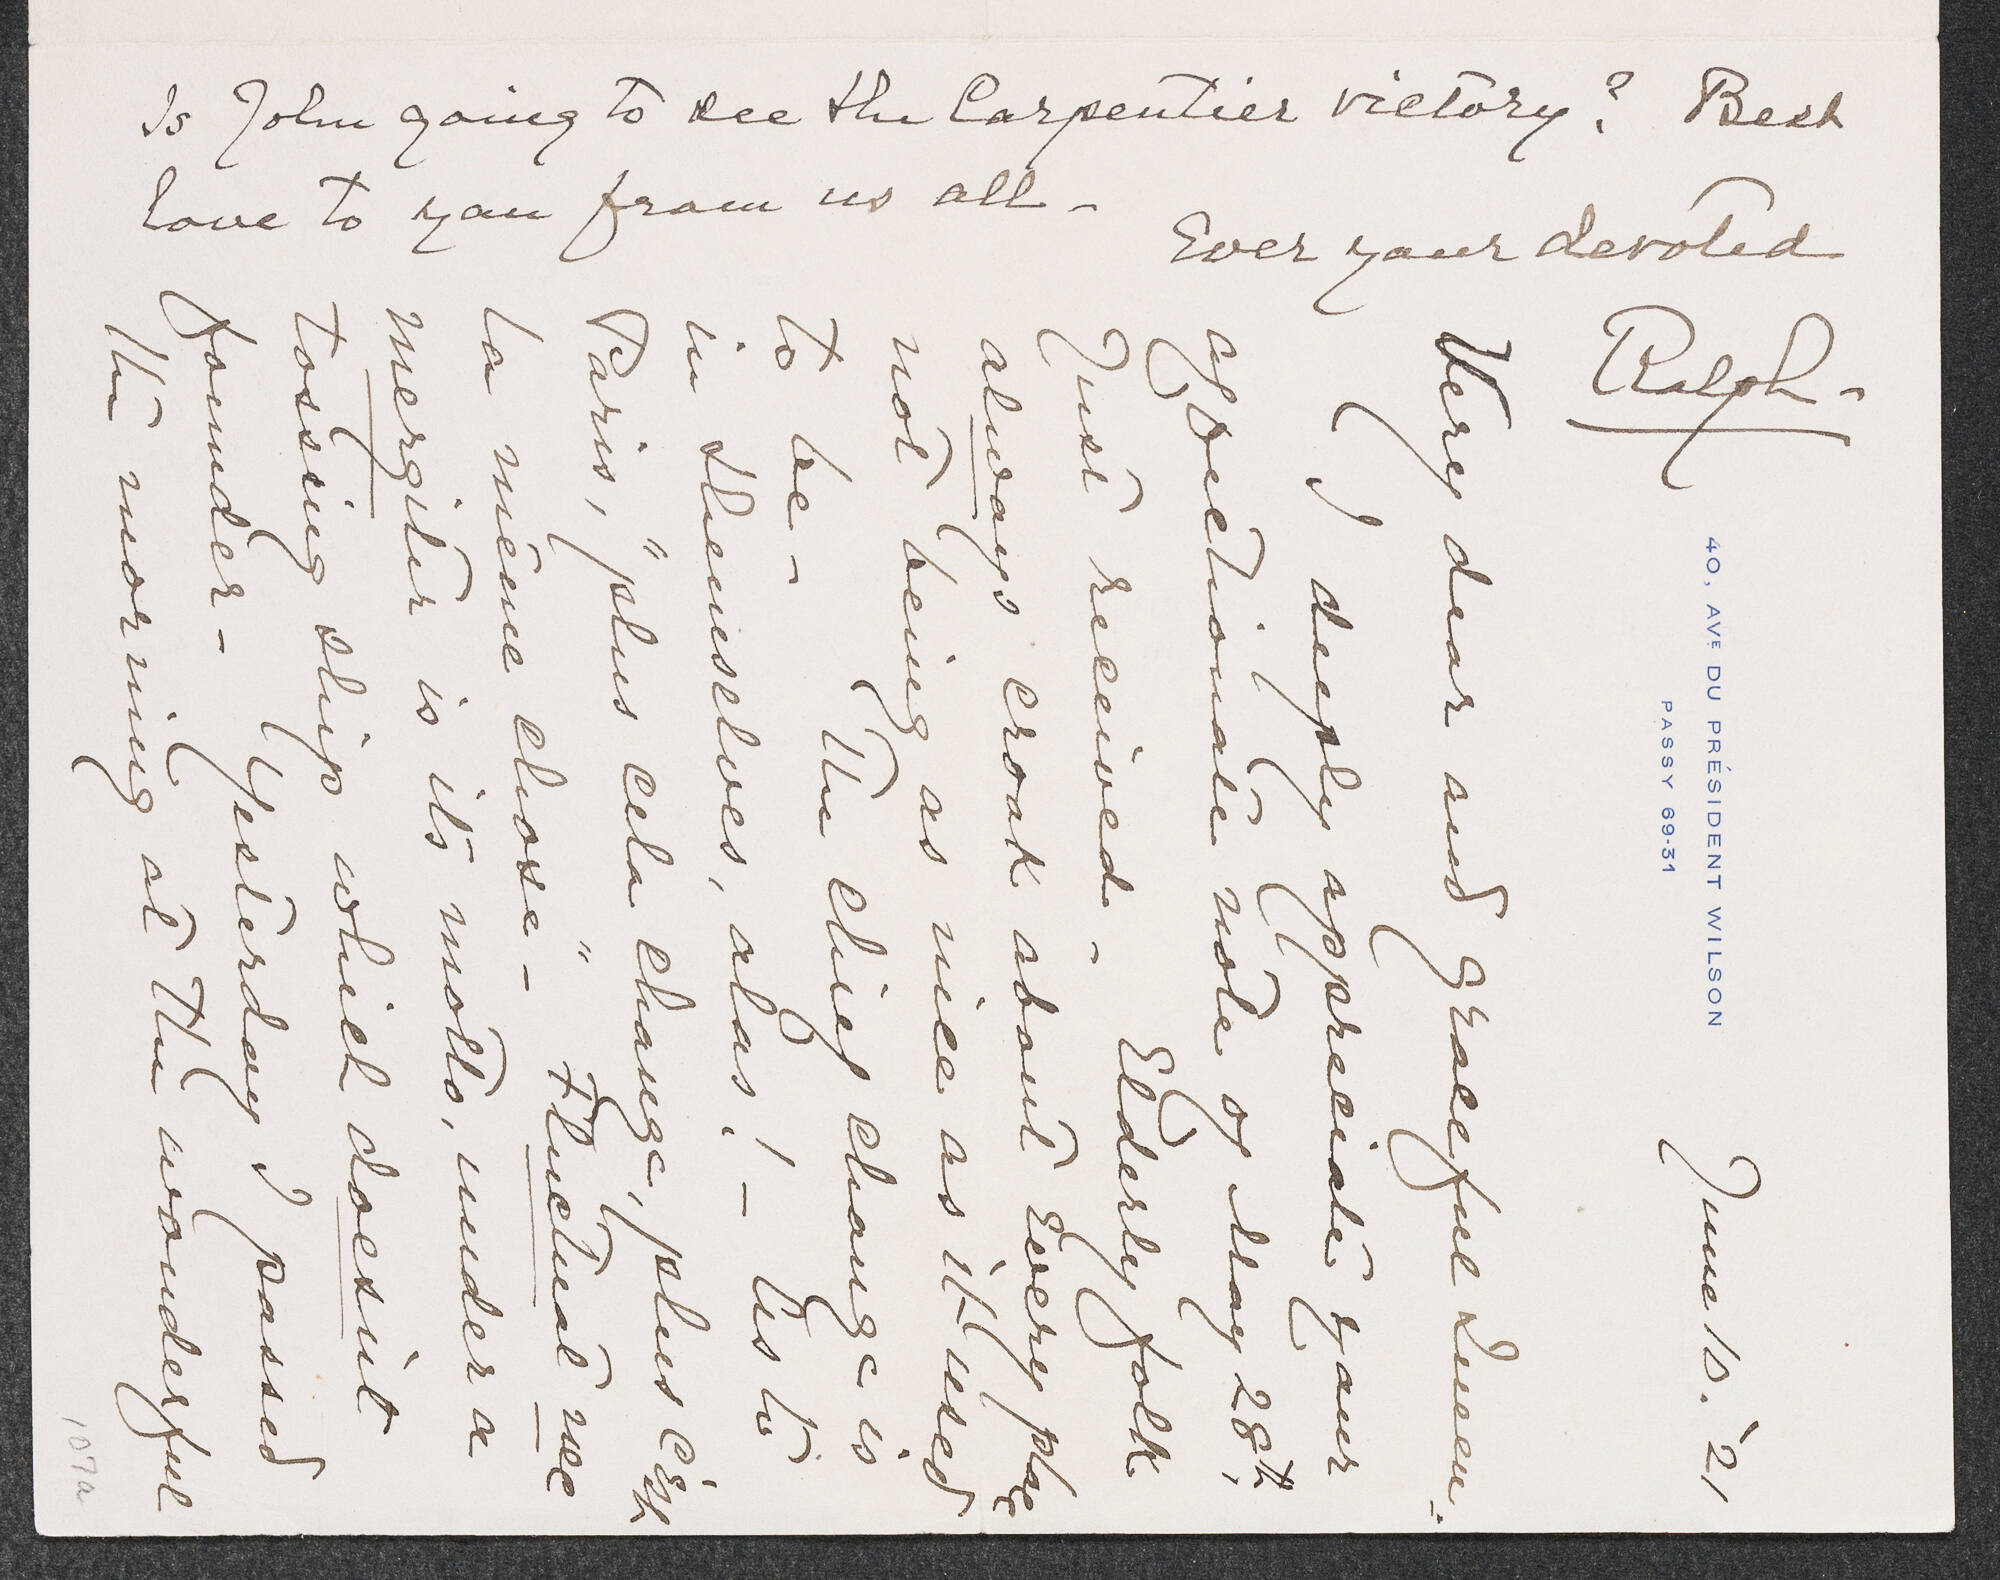 Is John going to see the Carpentier victory? Best
love to you from us all –
Ever your devoted
Ralph –
40, AVE DU PRÉSIDENT WILSON
PASSY 69-31
June 10. '21
Very dear and graceful Queen:
I deeply appreciate your
affectionate note of May 28th,
just received – Elderly folk
always croak about every place
not being as nice as it used
to be – The chief change is
in themselves, alas! – As to
Paris, "plus cela change, plus c'est
la même chose –" Fluctuat nec
mergitur is its motto, under a
tossing ship which doesn't
founder – Yesterday I passed
the morning at the wonderful
107a